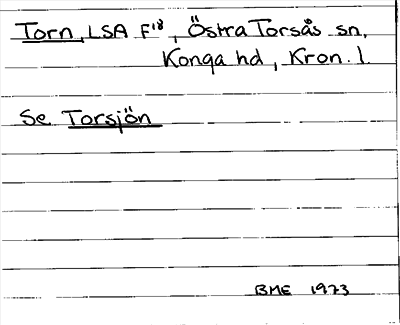 Torn, LSA F¹⁸, Östra Torsås sn,
Konga hd, Kron. l.
Se Torsjön
BME 1973